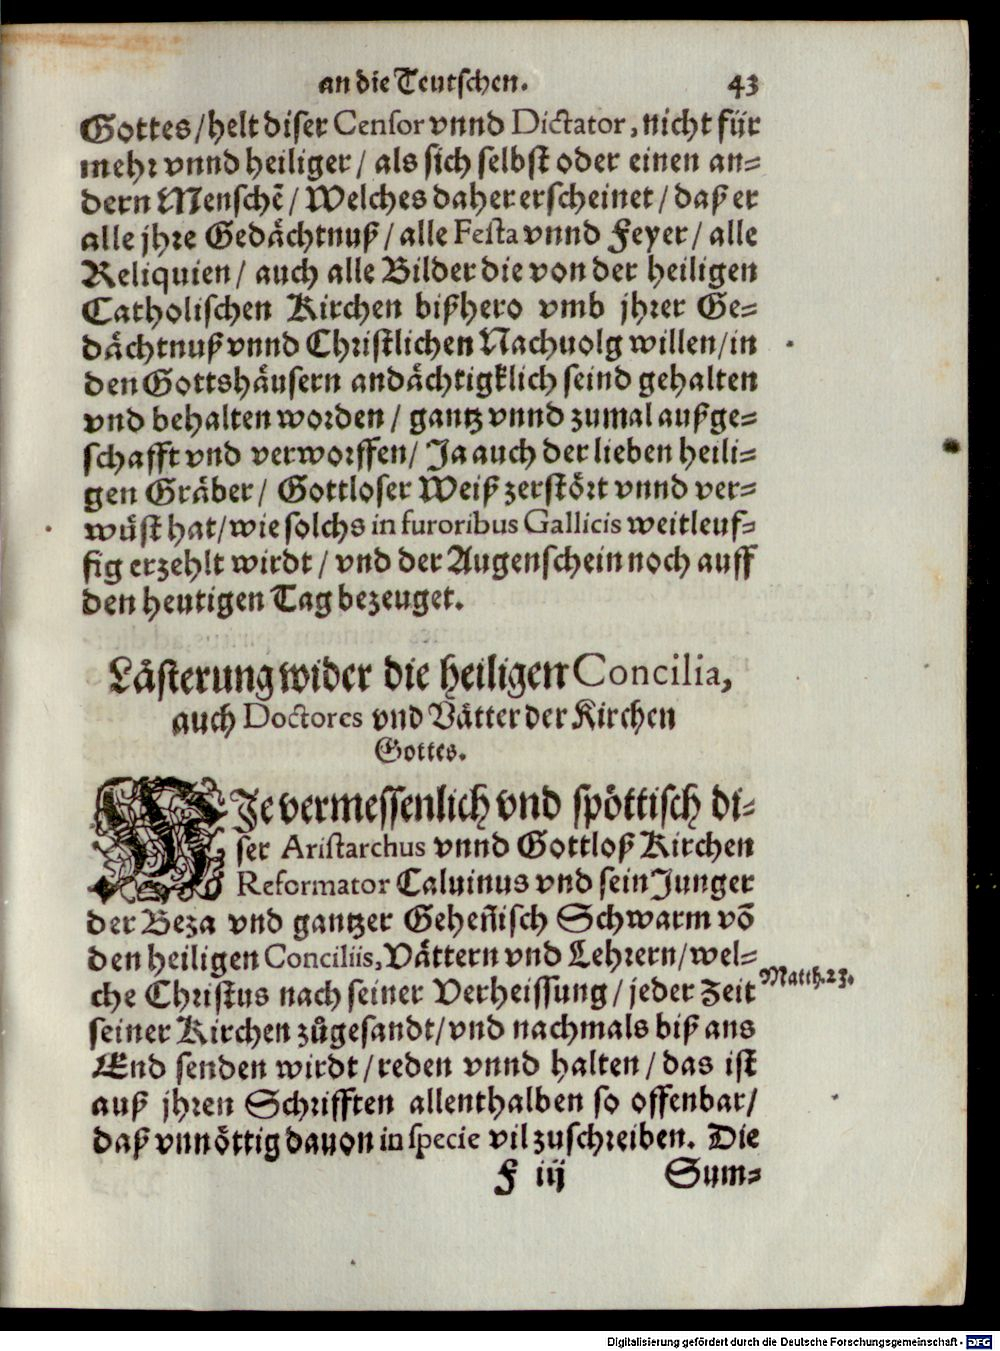 an die Teutschen. 43
Gottes/ helt diser Censor vnnd Dictator, nicht für
mehr vnnd heiliger/ als sich selbst oder einen an=
dern Menschē/ Welches daher erscheinet/ daß er
alle jhre Gedächtnuß/ alle Festa vnnd Feyer/ alle
Reliquien/ auch alle Bilder die von der heiligen
Catholischen Kirchen bißhero vmb jhrer Ge=
dächtnuß vnnd Christlichen Nachuolg willen/ in
den Gottshäusern andächtigklich seind gehalten
vnd behalten worden/ gantz vnnd zumal außge=
schafft vnd verworffen/ Ja auch der lieben heili=
gen Gräber/ Gottloser Weiß zerstört vnnd ver=
wüst hat/ wie solchs in furoribus Gallicis weitleuf=
fig erzehlt wirdt/ vnd der Augenschein noch auff
den heutigen Tag bezeuget.
Lästerung wider die heiligen Concilia,
auch Doctores vnd Vätter der Kirchen
Gottes.
WIe vermessenlich vnd spöttisch di=
ser Aristarchus vnnd Gottloß Kirchen
Reformator Caluinus vnd sein Junger
der Beza vnd gantzer Geheñisch Schwarm vō
den heiligen Conciliis, Vättern vnd Lehrern/ wel=
che Christus nach seiner Verheissung/ jeder Zeit
Matth. 23.
seiner Kirchen zůgesandt/ vnd nachmals biß ans
End senden wirdt/ reden vnnd halten/ das ist
auß jhren Schrifften allenthalben so offenbar/
daß vnnöttig dauon in specie vil zuschreiben. Die
F iij Sum=
Digitalisierung gefördert durch die Deutsche Forschungsgemeinschaft - DFG